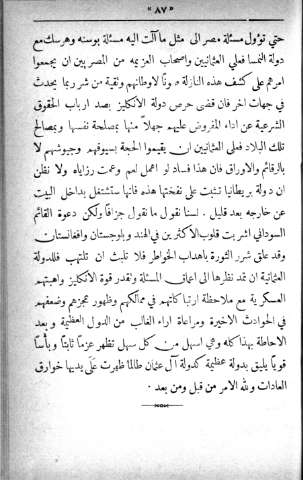 "٨٧"
حتي تؤول مسئلة مصر الى مثل ما آلت اليه مسئلة بوسنه وهرسك مع
دولة النمسا فعلي العثمانيين واصحاب العزيمه من المصريين ان يجمعوا
امرهم على كشف هذه النازلة صونًا لاوطانهم وتقية من شر ربما يحدث
في جهات اخر فان قضى حرص دولة الانكليز بصد ارباب الحقوق
الشرعية عن اداء المفروض عليهم جهلاً منها بمصلحة نفسها وبمصالح
تلك البلاد فعلي العثمانيين ان يقيموا الحجة بسيوفهم وجيوشهم لا
بالرقائم والاوراق فان هذا فساد لو اهمل لعم وعمت رزاياه ولا نظن
ان دولة بريطانيا تثبت على نفختها هذه فانها ستشتغل بداخل البيت
عن خارجه بعد قليل . لسنا نقول ما نقول جزافًا ولكن دعوة القائم
السوداني اشربت قلوب الاكثرين في الهند وبلوجستان وافغانستان
وقد علق شرر الثورة باهداب الخواطر فلا تلبث ان تلتهب فللدولة
العثمانية ان تمد نظرها الى اعماق المسئلة وتقدر قوة الانكليز واهبتهم
العسكرية مع ملاحظة ارتباكاتهم في ممالكهم وظهور عجزهم وضعفهم
في الحوادث الاخيرة ومراعاة اراء الغالب من الدول العظيمة وبعد
الاحاطة بهذا كله وهي اسهل من كل سهل تظهر عزمًا ثابتًا وبأسًا
قويًا يليق بدولة عظيمة كدولة آل عثمان طالما ظهرت على يديها خوارق
العادات ولله الامر من قبل ومن بعد .